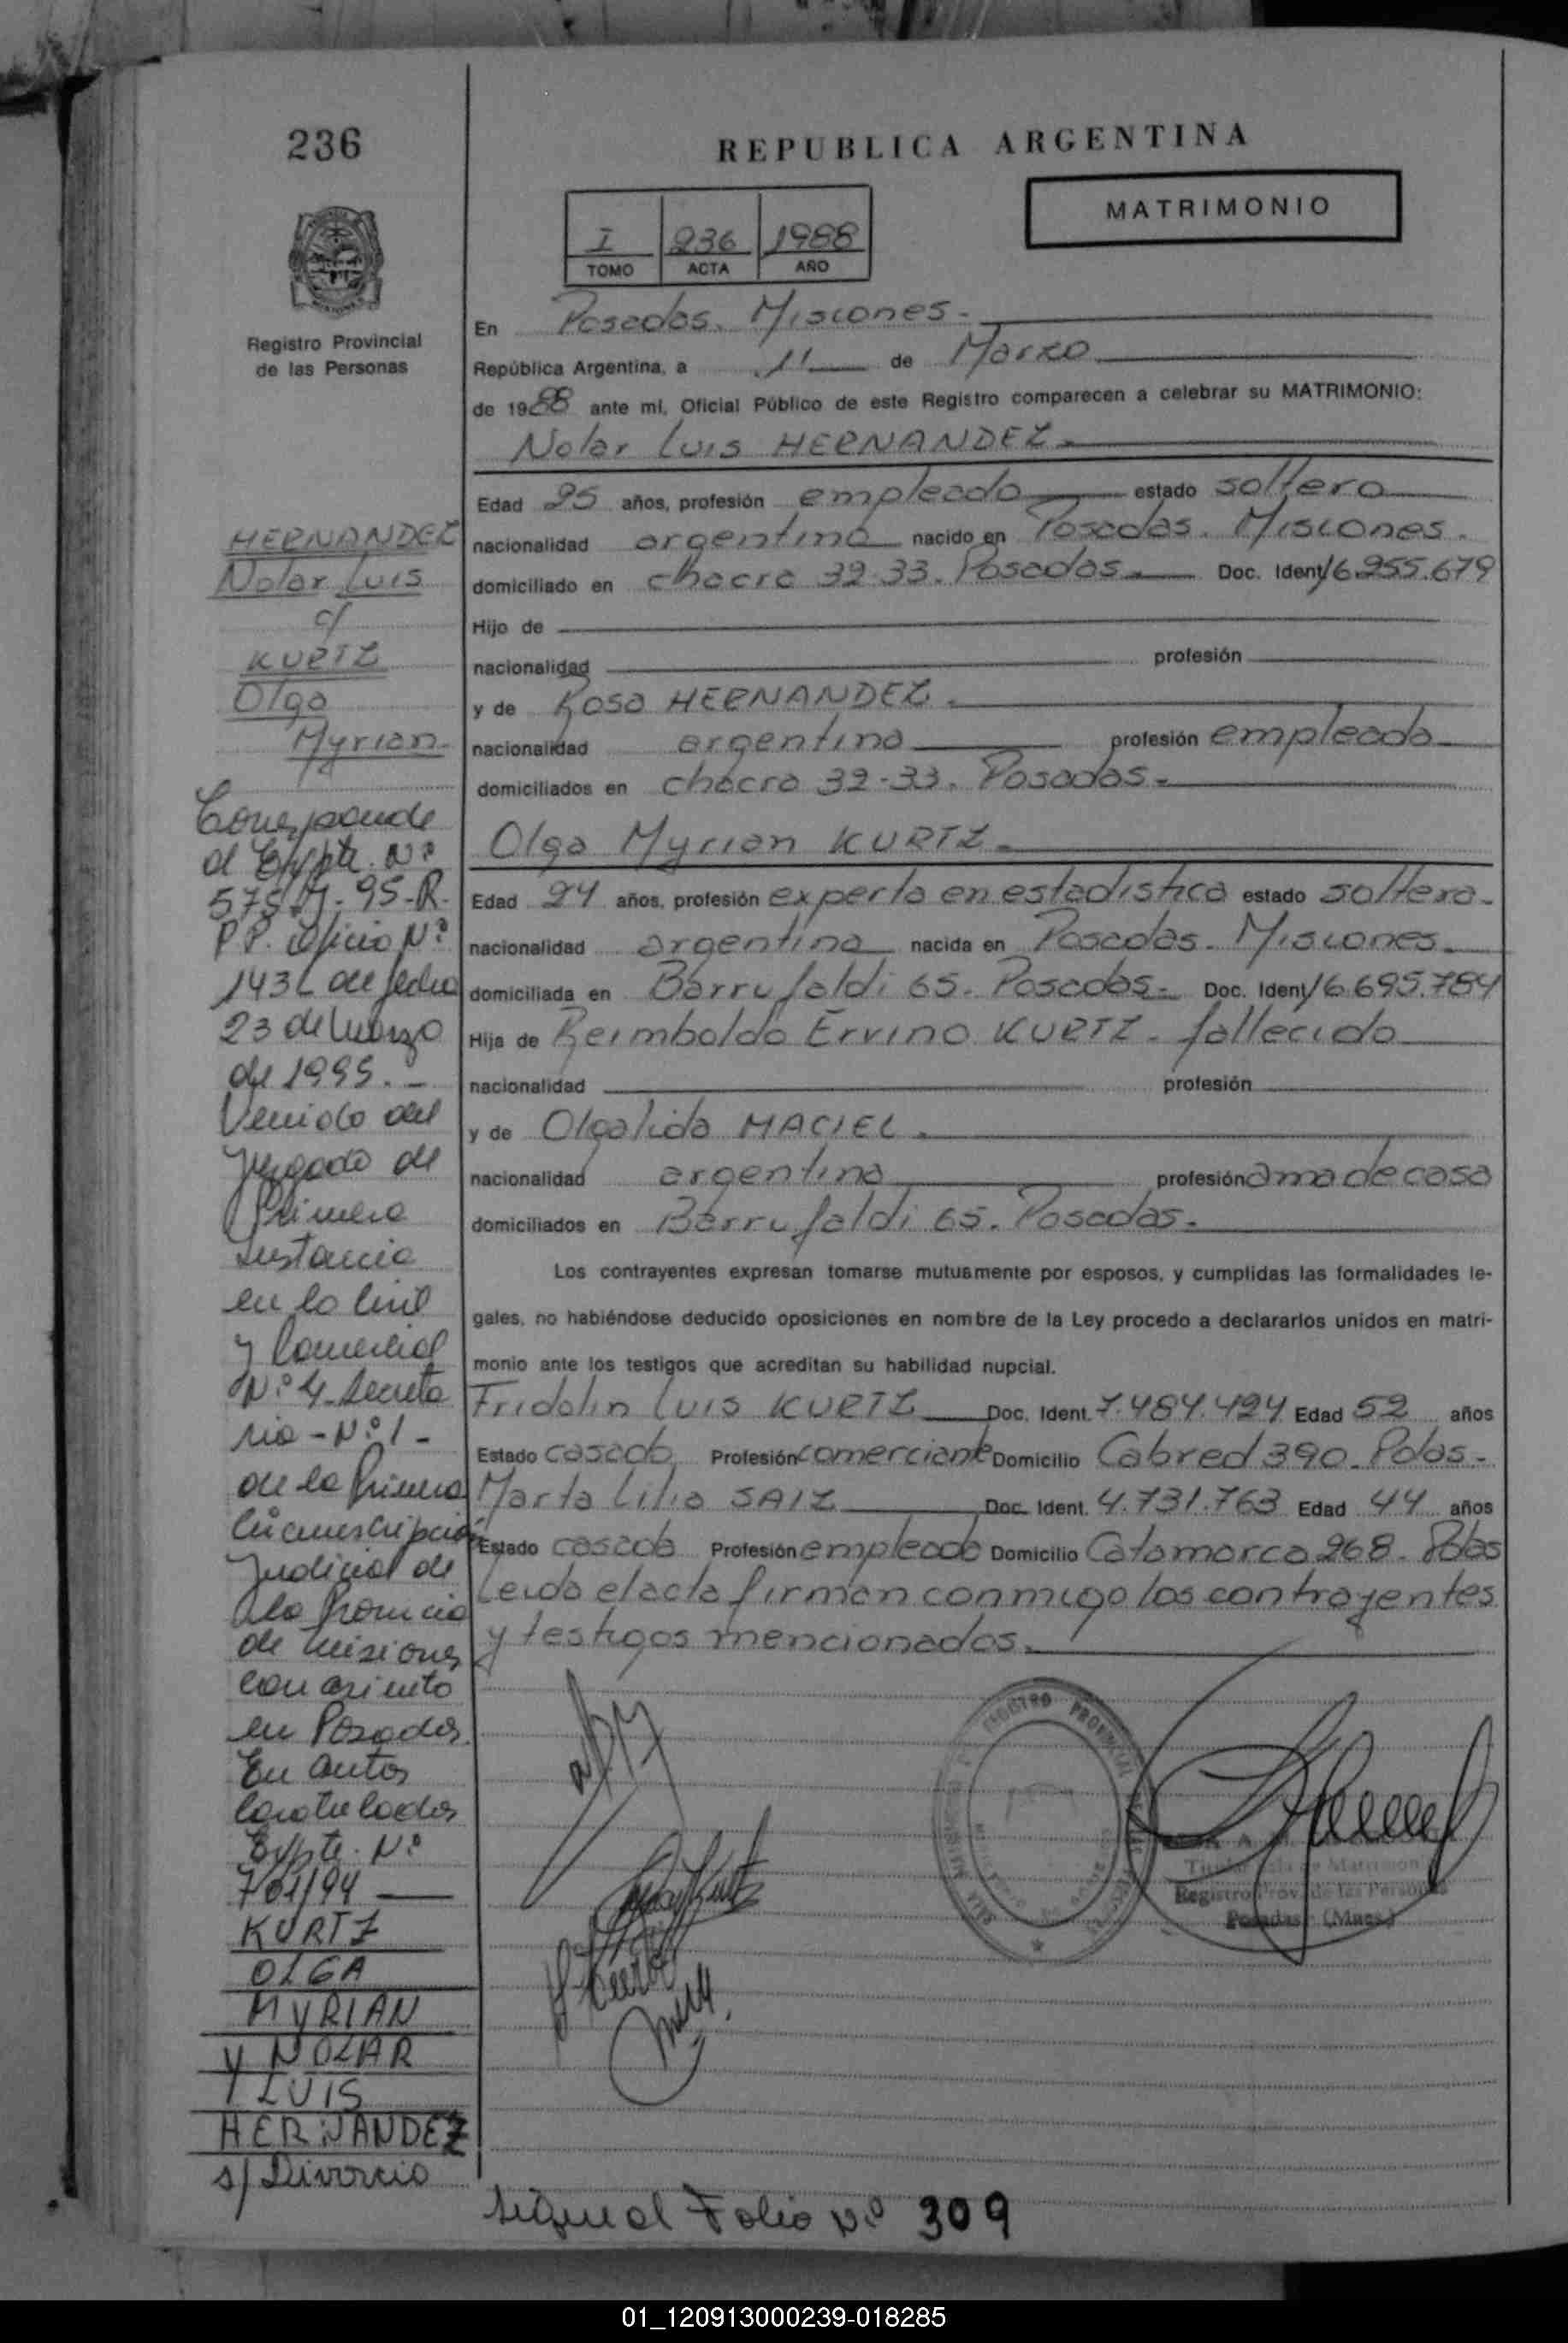 236
REPUBLICA ARGENTINA
MATRIMONIO
I 236 1988
TOMO ACTA AÑO
Registro Provincial
de las Personas
En Posadas. Misiones.
República Argentina, a 11 de Marzo
de 1988 ante mi, Oficial Público de este Registro comparecen a celebrar su MATRIMONIO:
Nolar Luis HERNANDEZ.
Edad 25 años, profesión empleado estado soltero
nacionalidad argentina nacido en Posadas. Misiones.
domiciliado en chacra 32-33. Posadas. Doc. Ident. 16.255.679
Hijo de
nacionalidad profesión
y de Rosa HERNANDEZ.
nacionalidad argentina profesión empleada
domiciliados en chacra 32-33. Posadas.
Olga Myrian KURTZ.
Edad 24 años, profesión experta en estadistica estado soltera.
nacionalidad argentina nacida en Posadas. Misiones.
domiciliada en Barrufaldi 65. Posadas. Doc. Ident. 16.695.784
Hija de Reimboldo Ervino KURTZ. fallecido
nacionalidad profesión
y de Olgalida MACIEL.
nacionalidad argentina profesión ama de casa
domiciliados en Barrufaldi 65. Posadas.
Los contrayentes expresan tomarse mutuamente por esposos, y cumplidas las formalidades le-
gales, no habiéndose deducido oposiciones en nombre de la Ley procedo a declararlos unidos en matri-
monio ante los testigos que acreditan su habilidad nupcial.
Fridolin Luis KURTZ Doc. Ident. 7.484.424 Edad 52 años
Estado casado Profesión comerciante Domicilio Cabred 390. Pdas.
Marta Lilia SAIZ Doc. Ident. 4.731.763 Edad 44 años
Estado casada Profesión empleada Domicilio Catamarca 268. Pdas
Leida el acta firman conmigo los contrayentes
y testigos mencionados.
HERNANDEZ
Nolar Luis
c/
KURTZ
Olga
Myrian
Corresponde
al Expte. Nº
575
95-R.
P.P. Oficio Nº
de fecha
23 de Marzo
de 1995.-
Venido del
Juzgado de
Primera
Instancia
en lo Civil
y Comercial
Nº 4 Secreta
ria - Nº 1 -
de la Primera
Circunscripción
Judicial de
la Provincia
de Misiones
con asiento
en Posadas
En autos
Caratulados
Expte. Nº
701/94
KURTZ
OLGA
MYRIAN
y NOLAR
LUIS
HERNANDEZ
s/ Divorcio
REGISTRO PROVINCIAL
Registro Prov. de las Personas
Posadas (Mnes.)
Sigue al Folio Nº 309
01_120913000239-018285